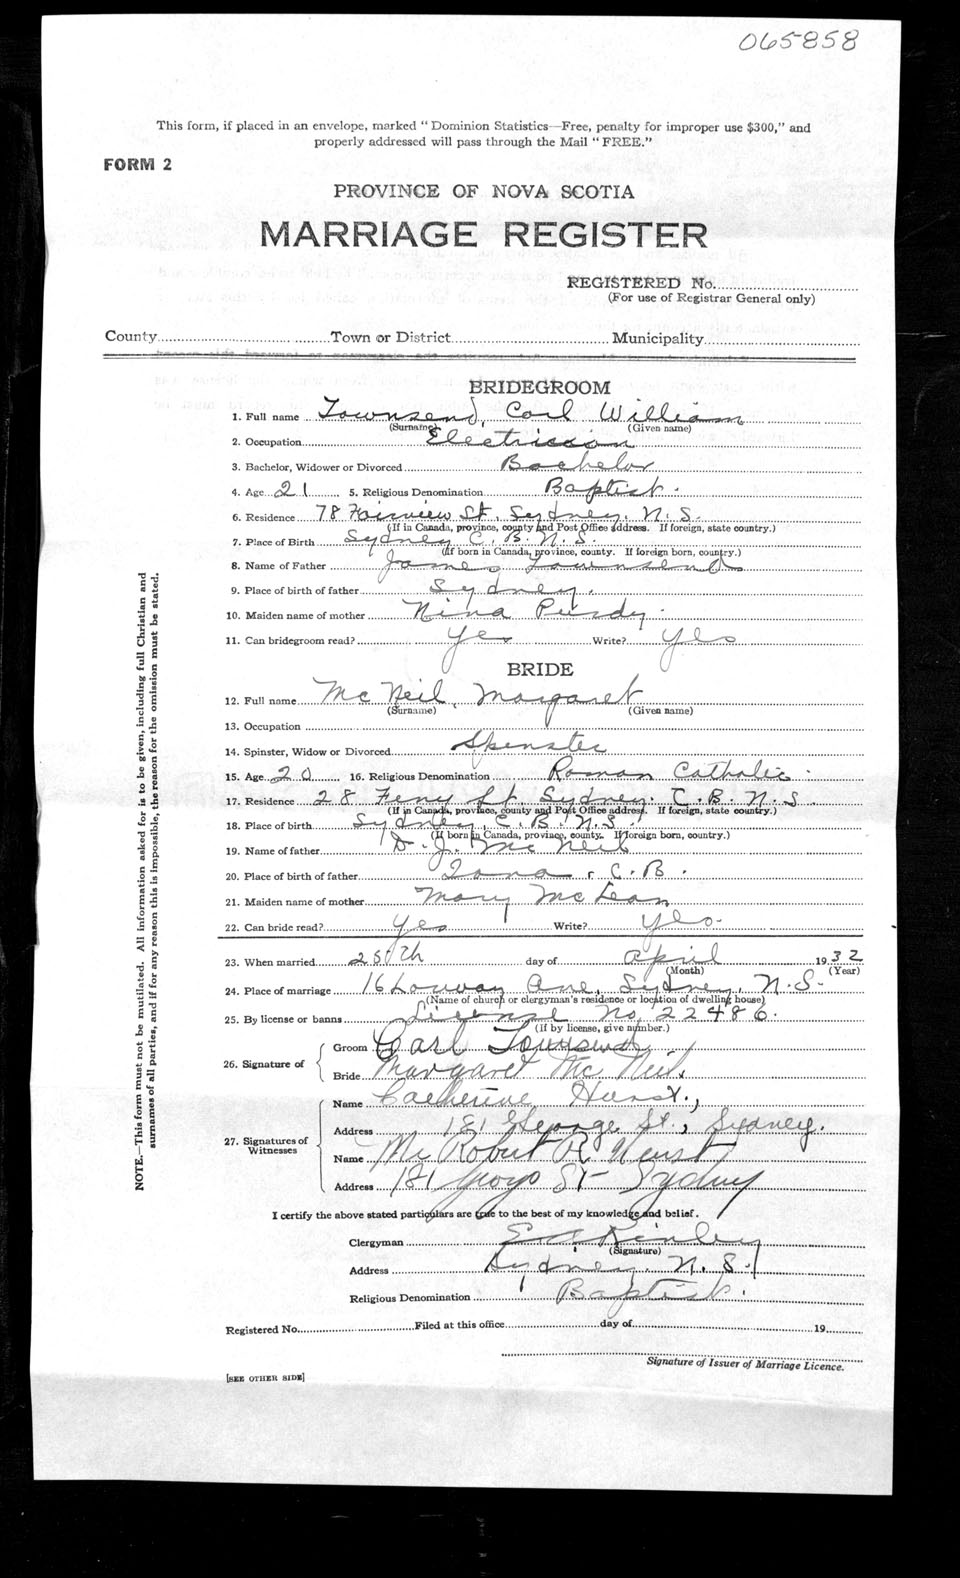 065858
This form, if placed in an envelope, marked "Dominion Statistics—Free, penalty for improper use $300," and
properly addressed will pass through the Mail "FREE."
FORM 2
PROVINCE OF NOVA SCOTIA
MARRIAGE REGISTER
REGISTERED No.
(For use of Registrar General only)
County Town or District Municipality
BRIDEGROOM
1. Full name Townsend, Carl William
(Surname) (Given name)
2. Occupation Electrician
3. Bachelor, Widower or Divorced Bachelor
4. Age 21 5. Religious Denomination Baptist.
6. Residence 78 Fairview St, Sydney, N.S.
(If in Canada, province, county and Post Office address. If foreign, state country.)
7. Place of Birth Sydney C.B. N.S.
(If born in Canada, province, county. If foreign born, country.)
8. Name of Father James Townsend
9. Place of birth of father Sydney.
10. Maiden name of mother Nina Purdy.
11. Can bridegroom read? Yes Write? Yes
BRIDE
12. Full name McNeil, Margaret
(Surname) (Given name)
13. Occupation
14. Spinster, Widow or Divorced Spinster
15. Age 20 16. Religious Denomination Roman Catholic.
17. Residence 28 Ferry St, Sydney. C.B. N.S.
(If in Canada, province, county and Post Office address. If foreign, state country.)
18. Place of birth Sydney, C.B. N.S.
(If born in Canada, province, county. If foreign born, country.)
19. Name of father D. J. McNeil
20. Place of birth of father Iona, C.B.
21. Maiden name of mother Mary McLean
22. Can bride read? Yes Write? Yes.
23. When married 25th day of April 1932
(Month) (Year)
24. Place of marriage 16 Ave, Sydney, N.S.
(Name of church or clergyman's residence or location of dwelling house)
25. By license or banns License No. 22486.
(If by license, give number.)
26. Signature of
Groom Carl Townsend
Bride Margaret McNeil.
27. Signatures of Witnesses
Name Catherine Hurst.,
Address 181 George St., Sydney.
Name Mr Robert R. Hurst
Address 181 George St Sydney
I certify the above stated particulars are true to the best of my knowledge and belief.
Clergyman Kinley
(Signature)
Address Sydney, N.S.
Religious Denomination Baptist.
Registered No. Filed at this office day of 19
Signature of Issuer of Marriage Licence.
[SEE OTHER SIDE]
NOTE.—This form must not be mutilated. All information asked for is to be given, including full Christian and
surnames of all parties, and if for any reason this is impossible, the reason for the omission must be stated.